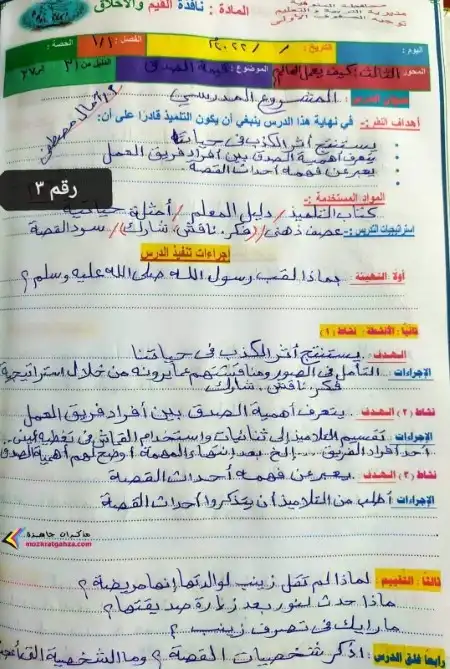 محافظة المنوفية
مديرية التربية والتعليم
توجيه الصفوف الأولى
المادة : نافذة القيم والأخلاق
اليوم :
التاريخ : / / ٢٠٢٢
الفصل : ١/١
الحصة :
المحور الثالث : كيف يعمل العالم
الموضوع : قيمة الصدق
الدليل من ٣١ إلى ٣٧
عنوان الدرس : المشروع المدرسي
أهداف الدرس :- في نهاية هذا الدرس ينبغي أن يكون التلميذ قادرًا على أن:
يستنتج أثر الكذب في حياتنا
يتعرف أهمية الصدق بين أفراد فريق العمل
يعبر عن فهمه أحداث القصة
رقم ٣
المواد المستخدمة :-
كتاب التلميذ / دليل المعلم / أمثلة حياتية
استراتيجيات التدريس :- عصف ذهني / (فكر، ناقش، شارك) / سرد القصة
إجراءات تنفيذ الدرس
أولا: التهيئة : بماذا لقب رسول الله صلى الله عليه وسلم ؟
ثانيا: الأنشطة : نشاط (١)
الهدف : يستنتج أثر الكذب في حياتنا
الإجراءات : التأمل في الصور ومناقشتهم عما يرونه من خلال استراتيجية
فكر، ناقش، شارك
نشاط (٢) الهدف : يتعرف أهمية الصدق بين أفراد فريق العمل
الإجراءات : تقسيم التلاميذ إلى ثنائيات واستخدام القماش في تغطية أعين
أحد أفراد الفريق ... إلخ بعد انتهاء المهمة أوضح لهم أهمية الصدق
نشاط (٣) الهدف : يعبر عن فهمه أحداث القصة
الإجراءات : أطلب من التلاميذ أن يتذكروا أحداث القصة
مذكرات جاهزة
mozkratgahza.com
ثالثا : التقييم : لماذا لم تقل زينب لوالدتها إنها مريضة ؟
ماذا حدث لنور بعد زيارة صديقتها ؟
ما رأيك في تصرف زينب ؟
رابعا غلق الدرس : اذكر شخصيات القصة ؟ وما الشخصية التي